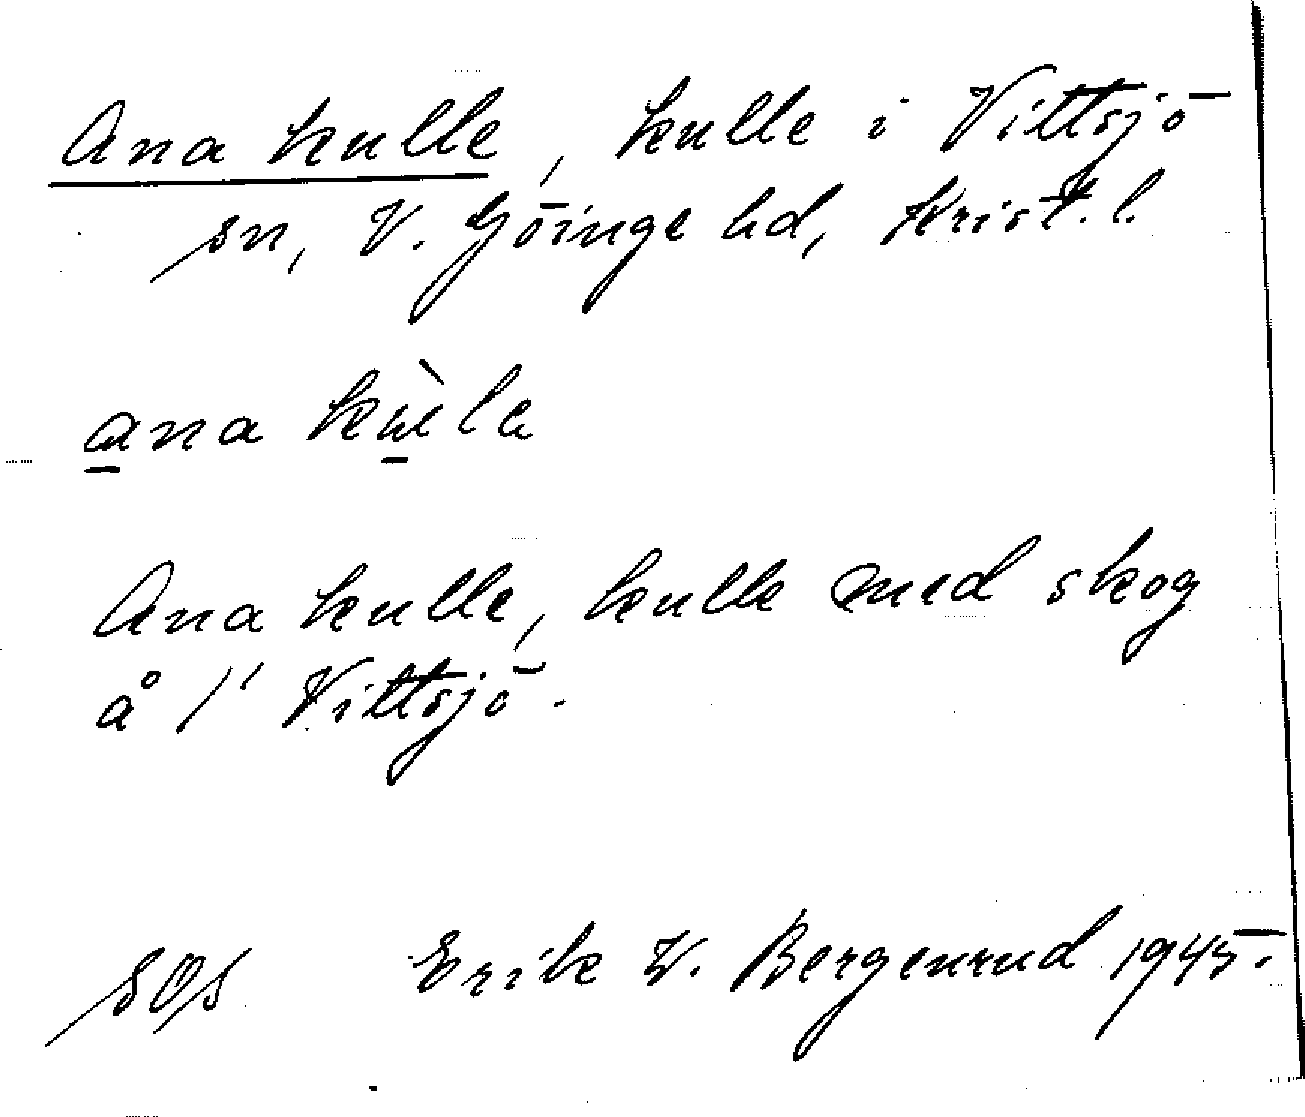 Ana kulle, kulle i Vittsjö
sn, V. Göinge hd, Krist. l.
ana kùla
Ana kulle, kulle med skog
å 1' Vittsjö.
SOS Erik W. Bergenrud 1945.